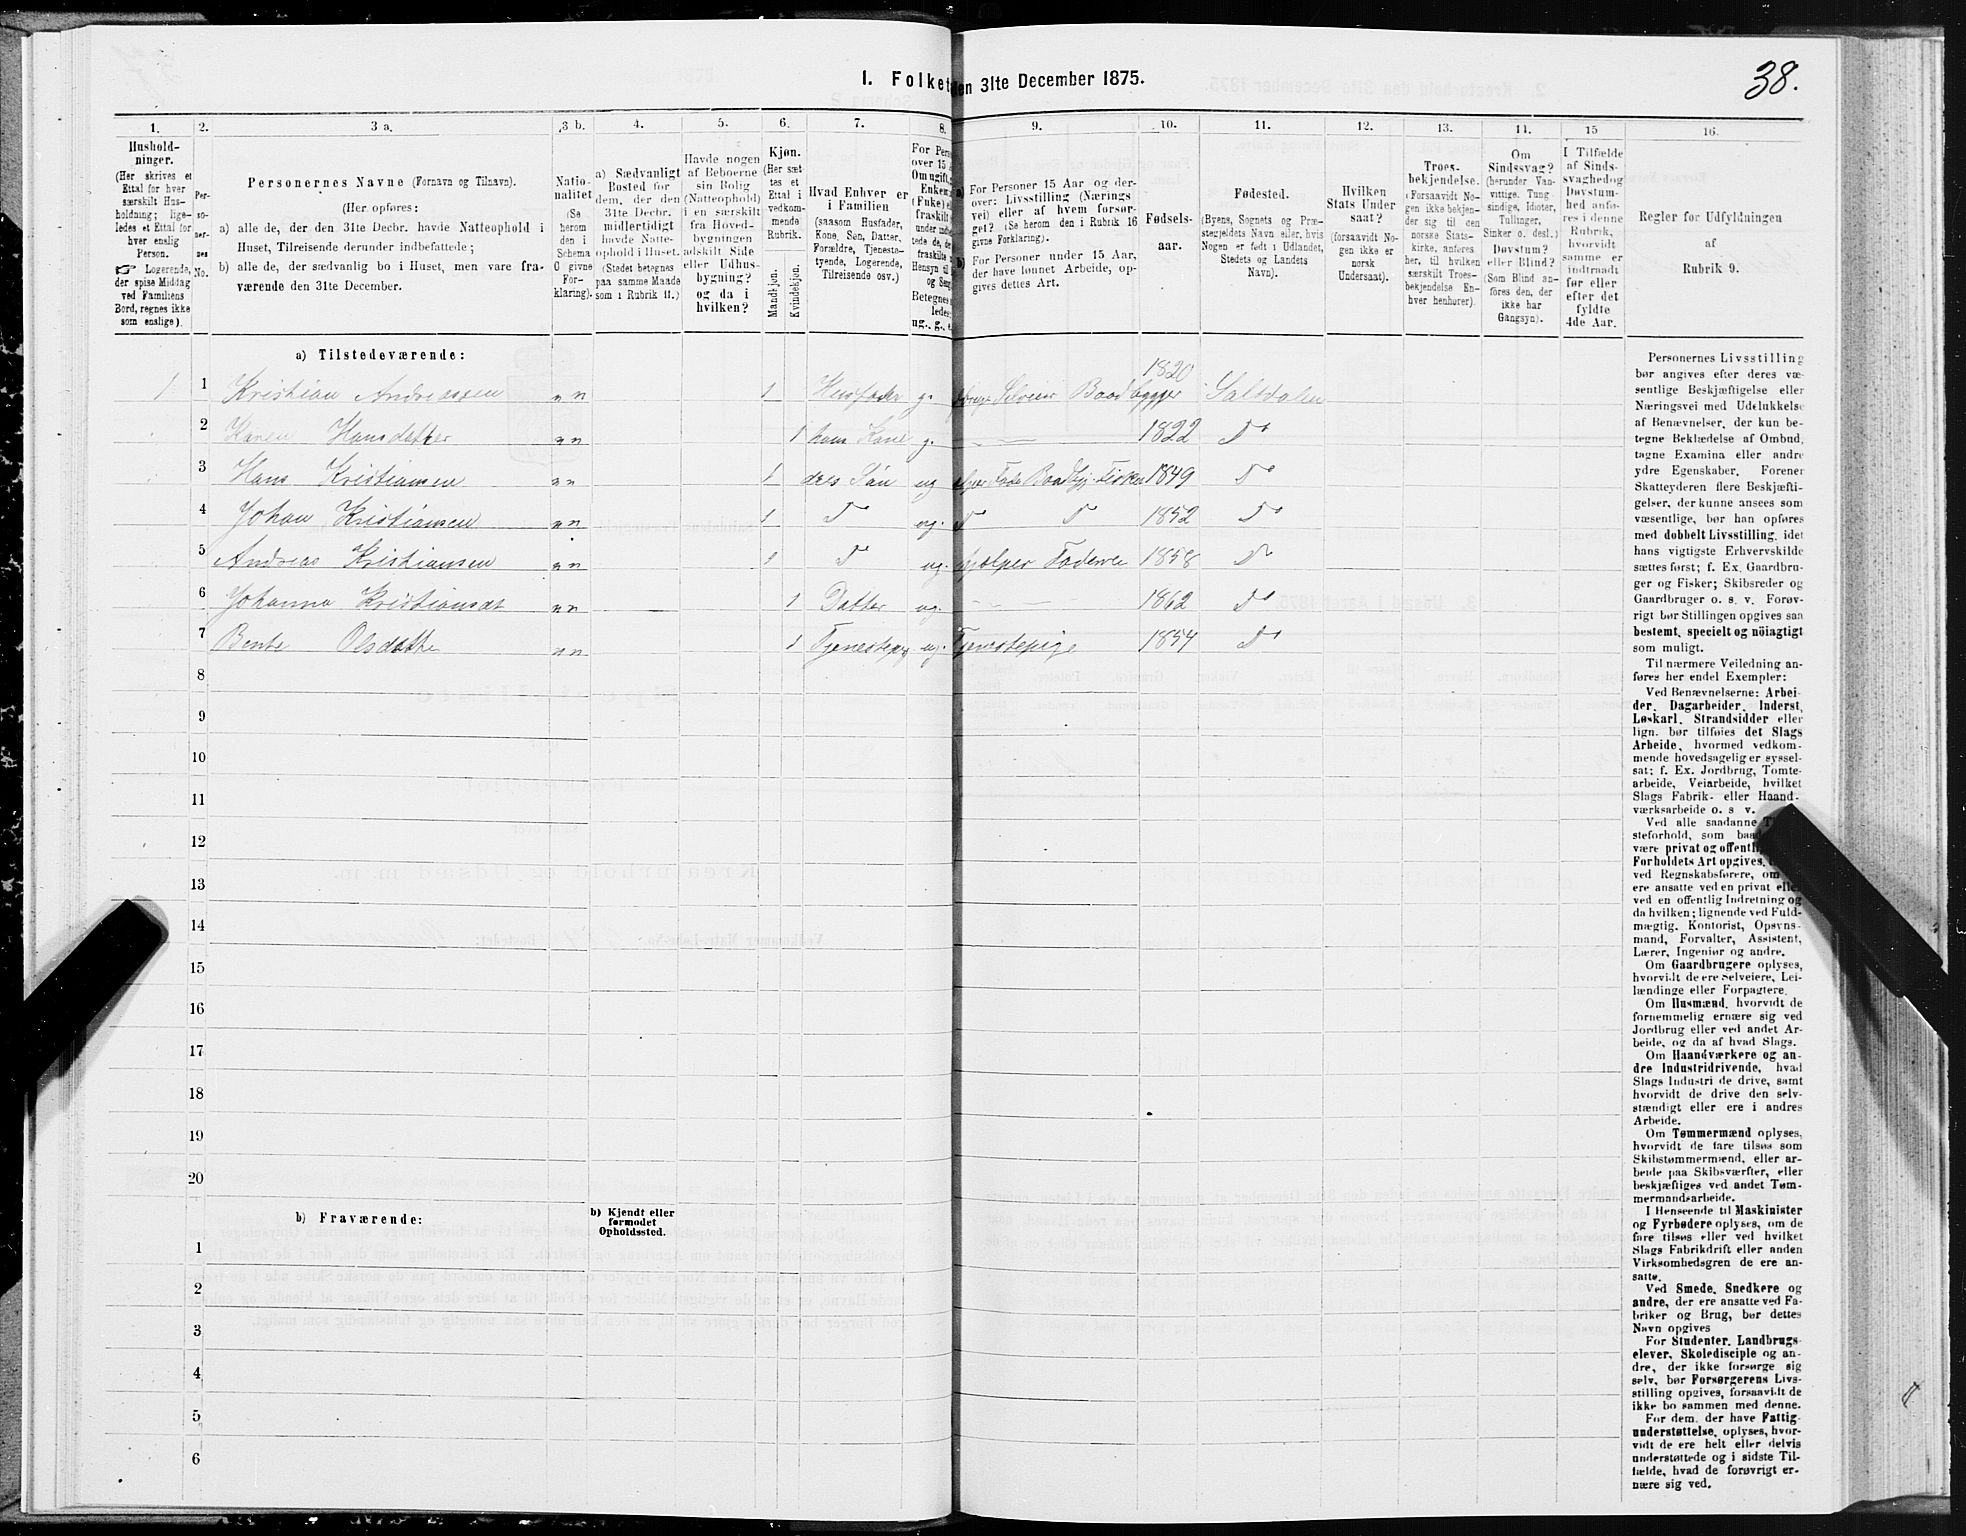 38.
I. Folket
den 31te December 1875.
1. 2. 3 a. 3 b. 4. 5. 6. 7. 8. 9. 10. 11. 12. 13. 14. 15 16.
Hushold-
ninger.
(Her skrives et
Ettal for hver
særskilt Hus-
holdning; lige-
ledes et Ettal for
hver enslig
Person.
☞ Logerende,
der spise Middag
ved Familiens
Bord, regnes ikke
som enslige).
Per-
so-
ner-
nes
No.
Personernes Navne (Fornavn og Tilnavn).
(Her opføres:
a) alle de, der den 31te Decbr. havde Natteophold i
Huset, Tilreisende derunder indbefattede;
b) alle de, der sædvanlig bo i Huset, men vare fra-
værende den 31te December.
Natio-
nalitet
(Se
herom
den i
Schema
O givne
For-
klaring).
a) Sædvanligt
Bosted for
dem, der den
31te Decbr.
midlertidigt
havde Natte-
ophold i Huset.
(Stedet betegnes
paa samme Maade
som i Rubrik 11.)
Havde nogen
af Beboerne
sin Bolig
(Natteophold)
i en særskilt
fra Hoved-
bygningen
adskilt Side
eller Udhus-
bygning?
og da i
hvilken?
Kjøn.
(Her sæt-
tes et
Ettal i
vedkom-
mende
Rubrik.
Mandkjøn.
Kvindekjøn.
Hvad Enhver er
i Familien
(saasom Husfader,
Kone, Søn, Datter,
Forældre, Tjeneste-
tyende, Logerende,
Tilreisende osv.)
For Pers
over 15
Om ugift,
Enkem
(Fuke)
fraskilt
under indbe
tede de, der
fraskilte
Hensyn til
og Sen
Betegnes
ledes:
ug., g., e
a) For Personer 15 Aar og der-
over: Livsstilling (Nærings
vei) eller af hvem forsør-
get? (Se herom den i Rubrik 16
givne Forklaring).
b) For Personer under 15 Aar,
der have lønnet Arbeide, op-
gives dettes Art.
Fødsels-
aar.
Fødested.
(Byens, Sognets og Præ-
stegjeldets Navn eller, hvis
Nogen er født i Udlandet,
Stedets og Landets
Navn).
Hvilken
Stats Under
saat?
(forsaavidt No-
gen ikke er
norsk
Undersaat).
Troes-
bekjendelse.
(Forsaavidt No-
gen ikke bekjen-
der sig til den
norske Stats-
kirke, anføres
her, til hvilken
særskilt Troes-
bekjendelse En-
hver henhører).
Om
Sindssvag?
(herunder Van-
vittige, Tung
sindige, Idioter,
Tullinger,
Sinker o. desl.)
Døvstum?
eller Blind?
(Som Blind an-
føres den, der
ikke har
Gangsyn).
I Tilfælde
af Sinds-
svaghed og
Døvstum-
hed anfø-
res i denne
Rubrik,
hvorvidt
samme er
indtraadt
før eller
efter det
fyldte
4de Aar.
Regler for Udfyldningen
af
Rubrik 9.
a) Tilstedeværende:
1 1 Kristian Andreassen n n 1 Husfader g. Selveier Baadbygger 1820 Saltdalen
2 Karen Hansdatter n n 1 hans Kone g. — — 1822 Do
3 Hans Kristiansen n n 1 deres Søn ug 1849 Do
4 Johan Kristiansen n n 1 Do ug. Do Do 1852 Do
5 Andreas Kristiansen n n 1 Do ug. hjælper Faderen 1858 Do
6 Johanna Kristiansdt n n 1 Datter ug. — — 1862 Do
7 Bente Olsdatte n n 1 Tjenestepig ug. Tjenestepige 1854 Do
8
9
10
11
12
13
14
15
16
17
18
19
20
b) Fraværende:
b) Kjendt eller
formodet
Opholdssted.
1
2
3
4
5
6
Personernes Livsstilling
bør angives efter deres væ-
sentlige Beskjæftigelse eller
Næringsvei med Udelukkelse
af Benævnelser, der kun be-
tegne Beklædelse af Ombud,
tagne Examina eller andre
ydre Egenskaber. Forener
Skatteyderen flere Beskjæfti-
gelser, der kunne ansees som
væsentlige, bør han opføres
med dobbelt Livsstilling, idet
hans vigtigste Erhvervskilde
sættes først; f. Ex. Gaardbru-
ger og Fisker; Skibsreder og
Gaardbruger o. s. v. Forøv-
rigt bør Stillingen opgives saa
bestemt, specielt og nöiagtigt
som muligt.
Til nærmere Veiledning an-
føres her endel Exempler:
Ved Benævnelserne: Arbei-
der, Dagarbeider, Inderst,
Løskarl, Strandsidder eller
lign. bør tilføies det Slags
Arbeide, hvormed vedkom-
mende hovedsagelig er syssel-
sat; f. Ex. Jordbrug, Tomte-
arbeide, Veiarbeide, hvilket
Slags Fabrik- eller Haand-
værksarbeide o. s v.
Ved alle saadanne
steforhold, som baa
være privat og offentli
Forholdets Art opgives,
ved Regnskabsførere, om
ere ansatte ved en privat eller
ved en offentlig Indretning og
da hvilken; lignende ved Fuld-
mægtig, Kontorist, Opsyns-
mand, Forvalter, Assistent,
Lærer, Ingeniør og andre.
Om Gaardbrugere oplyses,
hvorvidt de ere Selveiere, Lei-
lændinge eller Forpagtere.
Om Husmænd, hvorvidt de
fornemmelig ernære sig ved
Jordbrug eller ved andet Ar-
beide, og da af hvad Slags.
Om Haandværkere og an-
dre Industridrivende, hvad
Slags Industri de drive, samt
hvorvidt de drive den selv-
stændigt eller ere i andres
Arbeide.
Om Tømmermænd oplyses,
hvorvidt de fare tilsøs som
Skibstømmermænd, eller ar-
beide paa Skibsværfter, eller
beskjæftiges ved andet Tøm-
mermandsarbeide.
I Henseende til Maskinister
og Fyrbødere oplyses, om de
fare tilsøs eller ved hvilket
Slags Fabrikdrift eller anden
Virksomhedsgren de ere an-
satte.
Ved Smede, Snedkere og
andre, der ere ansatte ved Fa-
briker og Brug, bør dettes
Navn opgives
For Studenter, Landbrugs-
elever, Skoledisciple og an-
dre, der ikke forsørge sig
selv, bør Forsørgerens Livs-
stilling opgives, forsaavidt de
ikke bo sammen med denne.
For dem, der have Fattig-
understøttelse, oplyses, hvor-
vidt de ere helt eller delvis
understøttede og i sidste Til-
fælde, hvad de forøvrigt er-
nære sig ved.